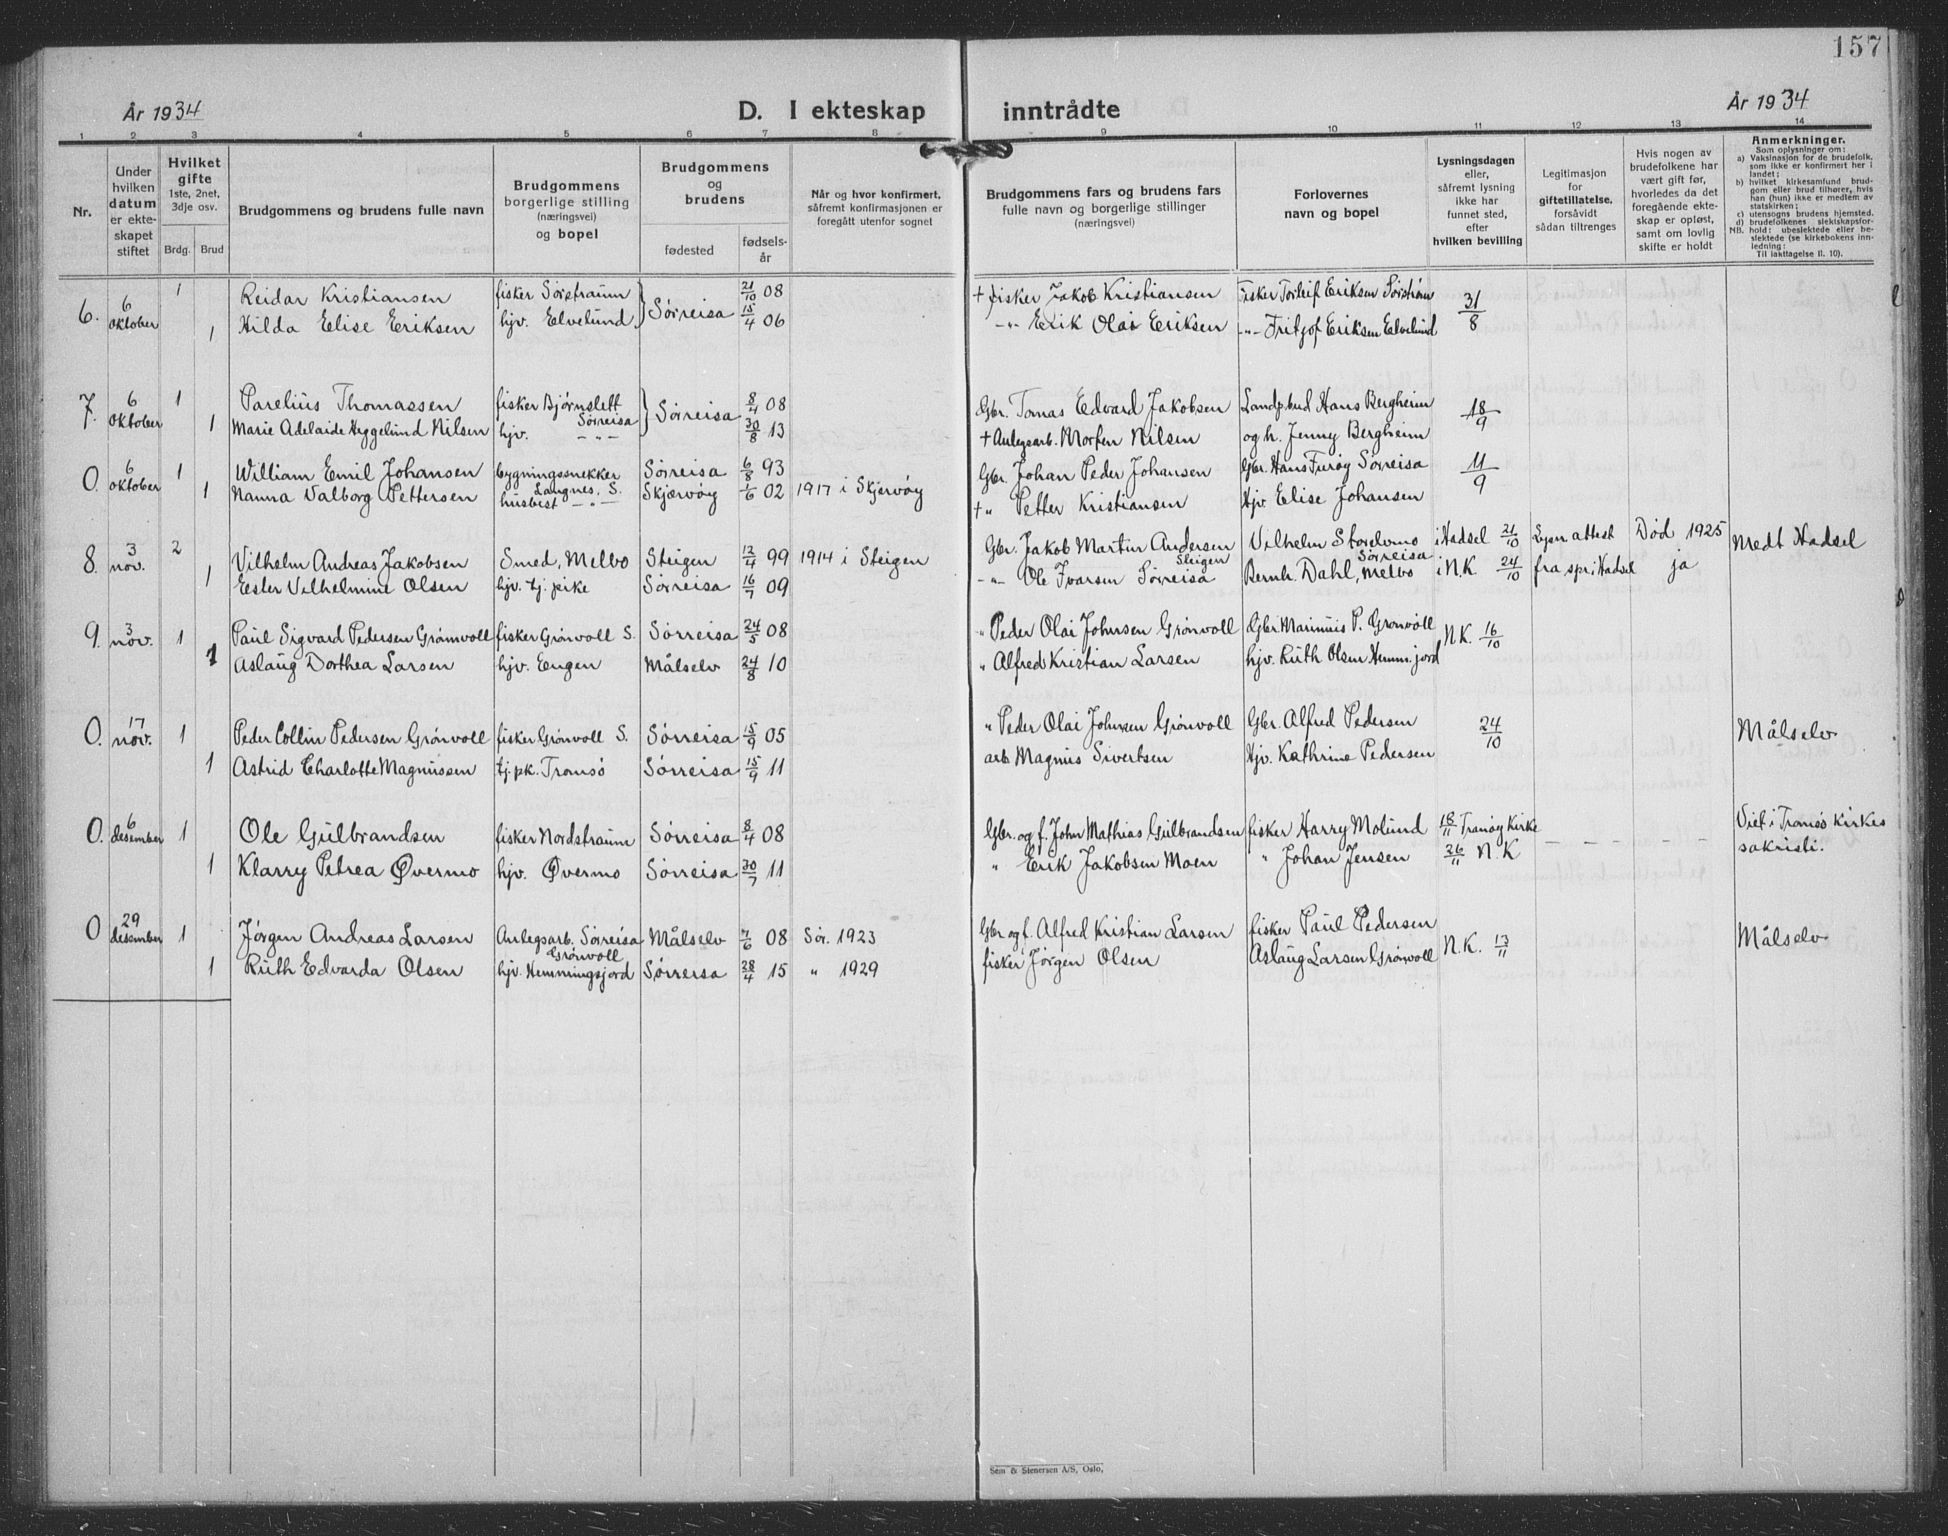 157
År 1934
D. I ekteskap inntrådte
År 1934
1 2 3 4 5 6 7 8 9 10 11 12 13 14
Nr.
Under hvilken datum er ekteskapet stiftet
Hvilket gifte 1ste, 2net, 3dje osv.
Brdg. Brud
Brudgommens og brudens fulle navn
Brudgommens borgerlige stilling (næringsvei) og bopel
Brudgommens og brudens
fødested
fødselsår
Når og hvor konfirmert, såfremt konfirmasjonen er foregått utenfor sognet
Brudgommens fars og brudens fars fulle navn og borgerlige stillinger (næringsvei)
Forlovernes navn og bopel
Lysningsdagen eller, såfremt lysning ikke har funnet sted, efter hvilken bevilling
Legitimasjon for giftetillatelse, forsåvidt sådan tiltrenges
Hvis nogen av brudefolkene har vært gift før, hvorledes da det foregående ekteskap er opløst, samt om lovlig skifte er holdt
Anmerkninger.
Som oplysninger om:
a) Vaksinasjon for de brudefolk, som ikke er konfirmert her i landet;
b) hvilket kirkesamfund brudgom eller brud tilhører, hvis han (hun) ikke er medlem av statskirken;
c) utensogns brudens hjemsted.
d) brudefolkenes slektskapsforhold: ubeslektede eller beslektede (se kirkebokens innledning;
NB.
Til iakttagelse II. 10).
6. 6 oktober 1 Reidar Kristiansen fisker Sørstraum } Sørreisa 21/10 08 + fisker Jakob Kristiansen Fisker Torleif Eriksen Sørstrøm 31/8
1 Hilda Elise Eriksen hjv. Elvelund 15/4 06 -"- Erik Olai Eriksen -"- Fritjof Eriksen Elvelund
7. 6 oktober 1 Parelius Thomassen fisker Bjørnslett Sørreisa } Sørreisa 8/4 08 Gbr. Tomas Edvard Jakobsen Landpbud Hans Bergheim 18/9
1 Marie Adelaide Hyggelund Nilsen hjv. -"- 30/8 13 + Anlegsarb. Morten Nilsen og h. Jenny Bergheim
0. 6 oktober 1 William Emil Johansen bygningssnekker Langnes, S. Sørreisa 6/8 93 Gbr. Johan Peder Johansen Gbr. Hans Furøy Sørreisa 11/9
1 Nanna Valborg Pettersen husbest -"- Skjervøy 1/6 02 1917 i Skjervøy + " Petter Kristiansen Hjv. Elise Johansen
8. 3 nov. 2 Vilhelm Andreas Jakobsen Smed, Melbo Steigen 12/4 99 1914 i Steigen Gbr. Jakob Martin Andersen Steigen Vilhelm Storelvmo Sørreisa i Hadsel 21/10 Lysn attest Død 1925 Medt Hadsel
1 Ester Vilhelmine Olsen hjv. tj. pike Sørreisa 16/7 09 -"- Ole Ivarsen Sørreisa Bernh. Dahl, Melbo i N.K 24/10 fra spr. i Hadsel ja
9. 3 nov. 1 Paul Sigvard Pedersen Grønvoll fisker Grønvoll S. Sørreisa 24/5 08 " Peder Olai Johnsen Grønvoll Gbr. Marinius P. Grønvoll N.K. 16/10
1 Aslaug Dorthea Larsen hjv. Engen Målselv 24/8 10 " Alfred Kristian Larsen hjv. Ruth Olsen Hemm.jord
0. 17 nov. 1 Peder Collin Pedersen Grønvoll fisker Grønvoll S. Sørreisa 15/9 05 " Peder Olai Johnsen Grønvoll Gbr. Alfred Pedersen 24/10 Målselv
1 Astrid Charlotte Magnussen tj.pk. Tromsø Sørreisa 15/9 11 arb Magnus Sivertsen Hjv. Kathrine Pedersen
0. 6 desember 1 Ole Gulbrandsen fisker Nordstraum Sørreisa 8/4 08 Gbr. og f. John Mathias Gulbrandsen fisker Harry Molund 18/11 Tranøy Kirke - - - - - Viet i Tromsø kirkes sakristi.
1 Klarry Petrea Øvermo hjv. Øvermo Sørreisa 30/7 11 " Erik Jakobsen Moen " Johan Jensen 26/11 N.K
0 29 desember 1 Jørgen Andreas Larsen Anlegsarb. Sørreisa Grønvoll Målselv 7/6 08 Sør. 1923 Gbr og f. Alfred Kristian Larsen fisker Paul Pedersen N.K. 13/11 Målselv
1 Ruth Edvarda Olsen hjv. Hemmingsjord Sørreisa 28/4 15 " 1929 fisker Jørgen Olsen Aslaug Larsen Grønvoll
Sem & Stenersen A/S, Oslo.